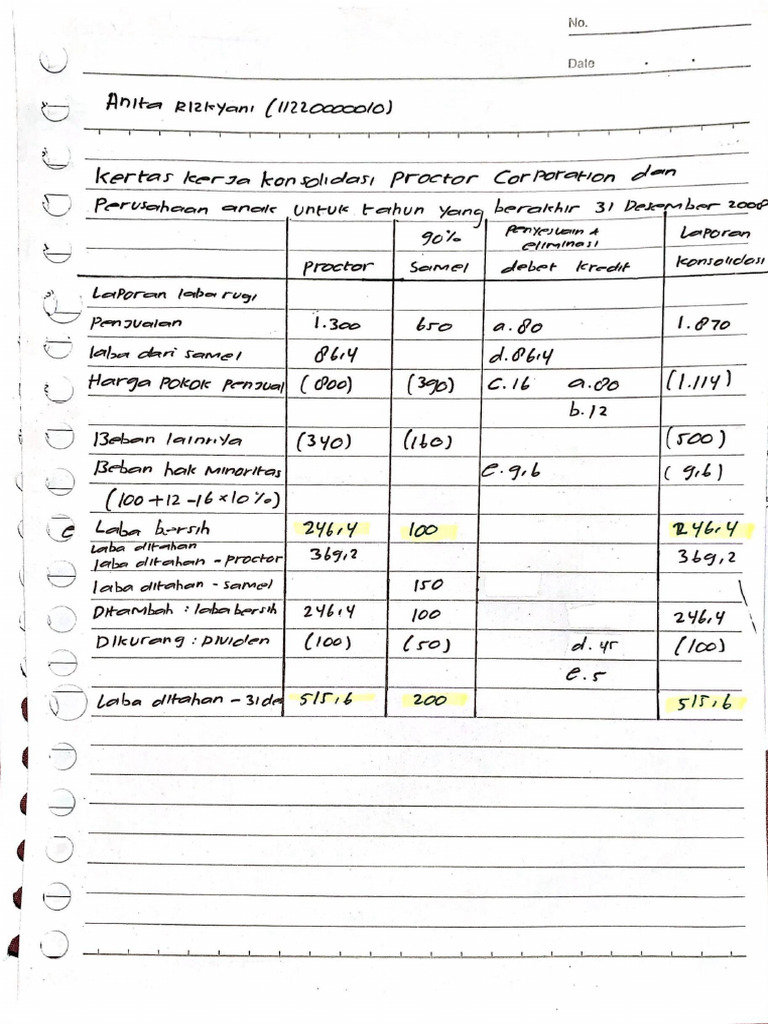 No.
Date
Anita Rizkyani (11220000010)
Kertas kerja konsolidasi Proctor Corporation dan
Perusahaan anak untuk tahun yang berakhir 31 Desember 2008
Proctor 90% Samel Penyesuain & eliminasi debet kredit Laporan Konsolidasi
Laporan laba rugi
Penjualan 1.300 650 a.80 1.870
laba dari samel 86,4 d.86,4
Harga Pokok Penjual (800) (390) c.16 a.80 (1.114)
b.12
Beban lainnya (340) (160) (500)
Beban hak Minoritas e.9,6 (9,6)
(100+12-16×10%)
Laba bersih 246,4 100 246,4
Laba ditahan
laba ditahan - proctor 369,2 369,2
laba ditahan - samel 150
Ditambah : laba bersih 246,4 100 246,4
Dikurang : Dividen (100) (50) d.45 (100)
e.5
Laba ditahan - 31 de 515,6 200 515,6